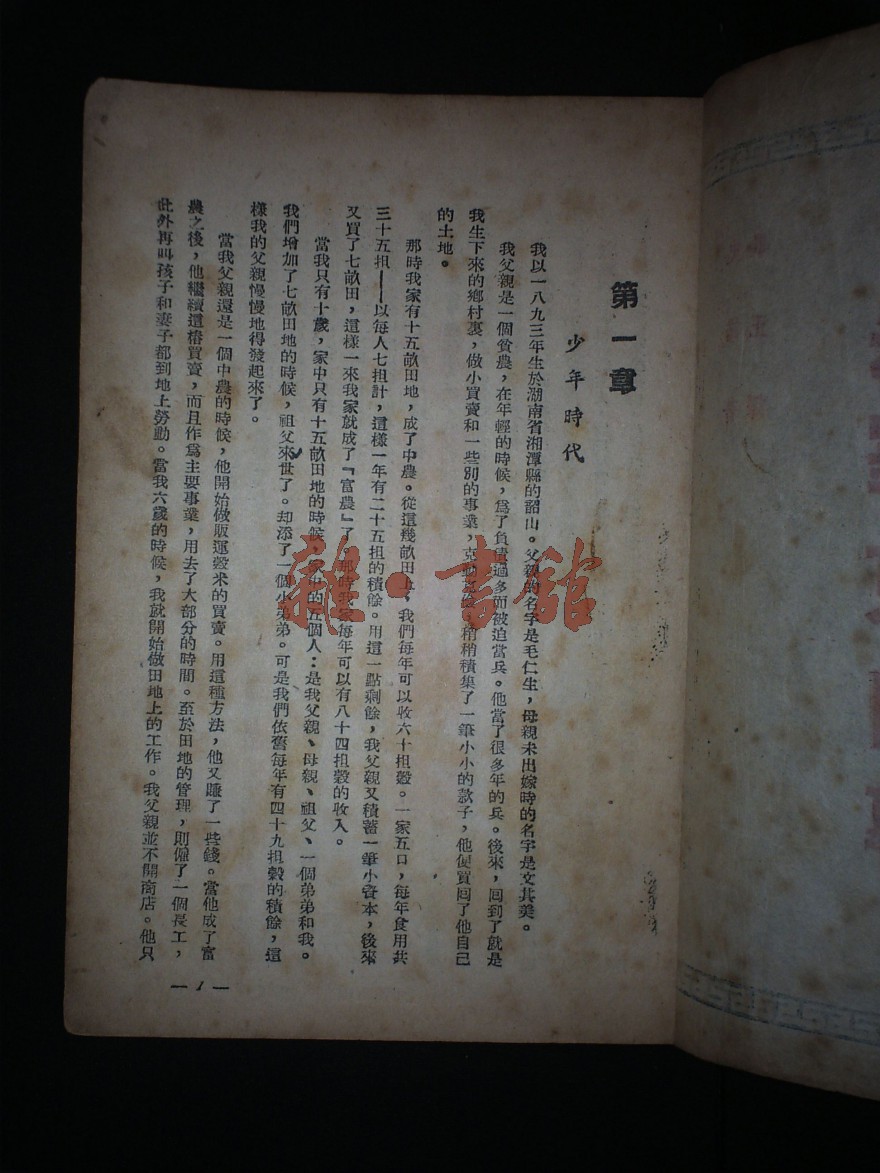 第一章
少年時代
我以一八九三年生於湖南省湘潭縣的韶山。父親的名字是毛仁生，母親未出嫁時的名字是文其美。
我父親是一個貧農，在年輕的時候，爲了負債過多而被迫當兵。他當了很多年的兵。後來，囘到了就是
我生下來的鄉村裏，做小買賣和一些別的事業，克勤克儉，稍稍積集了一筆小小的款子，他便買囘了他自己
的土地。
那時我家有十五畝田地，成了中農。從這幾畝田上，我們每年可以收六十担穀。一家五口，每年食用共
三十五担——以每人七担計，這樣一年有二十五担的積餘。用這一點剩餘，我父親又積蓄一筆小資本，後來
又買了七畝田，這樣一來我家就成了『富農』了。那時我家每年可以有八十四担穀的收入。
當我只有十歲，家中只有十五畝田地的時候，家中的五個人：是我父親、母親、祖父、一個弟弟和我。
我們增加了七畝田地的時候，祖父來世了。却添了一個小弟弟。可是我們依舊每年有四十九担穀的積餘，這
樣我的父親慢慢地得發起來了。
當我父親還是一個中農的時候，他開始做販運穀米的買賣。用這種方法，他又賺了一些錢。當他成了富
農之後，他繼續這樁買賣，而且作爲主要事業，用去了大部分的時間。至於田地的管理，則僱了一個長工，
此外再叫孩子和妻子都到地上勞動。當我六歲的時候，我就開始做田地上的工作。我父親並不開商店。他只
— 1 —
雜·書館